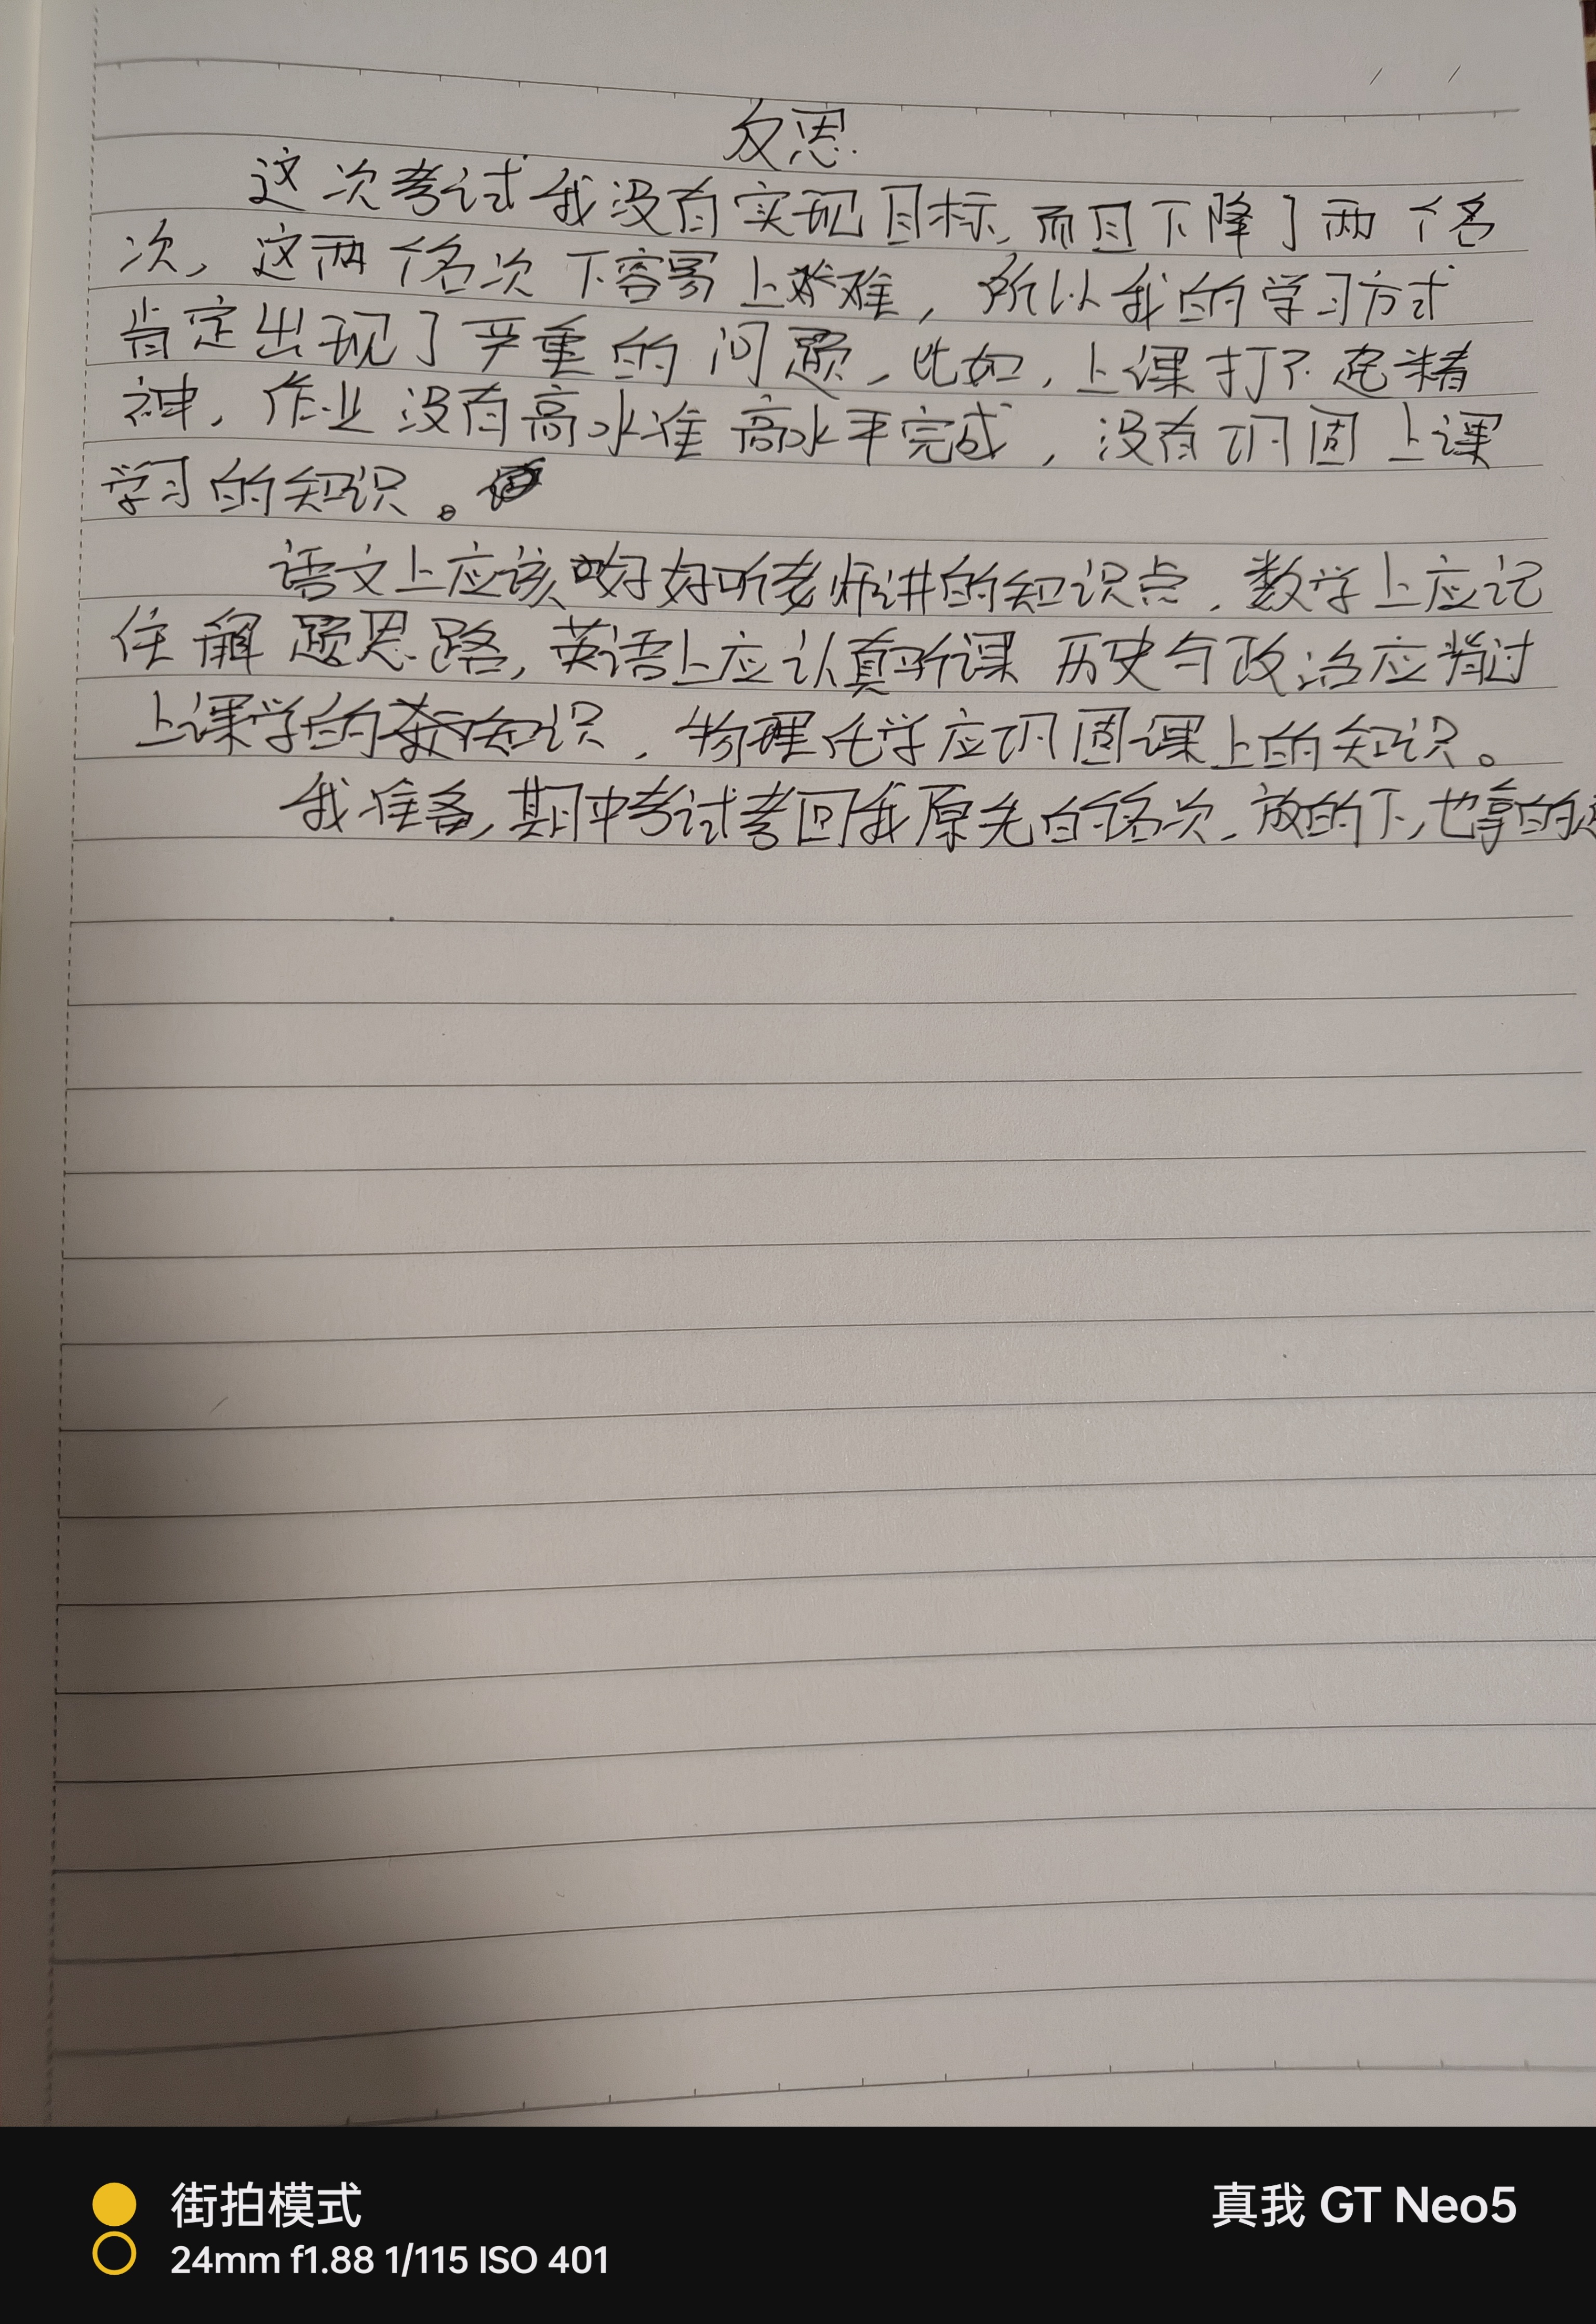 反思
这次考试我没有实现目标,而且下降了两个名
次,这两个名次下容易上难,所以我的学习方式
肯定出现了严重的问题,比如,上课打不起精
神,作业没有高水准高水平完成,没有巩固上课
学习的知识。
语文上应该好好听老师讲的知识点,数学上应记
住解题思路,英语上应认真听课 历史与政治应背过
上课学的知识,物理化学应巩固课上的知识。
我准备,期中考试考回我原先的名次,放的下,也拿的起
街拍模式
真我 GT Neo5
24mm f1.88 1/115 ISO 401